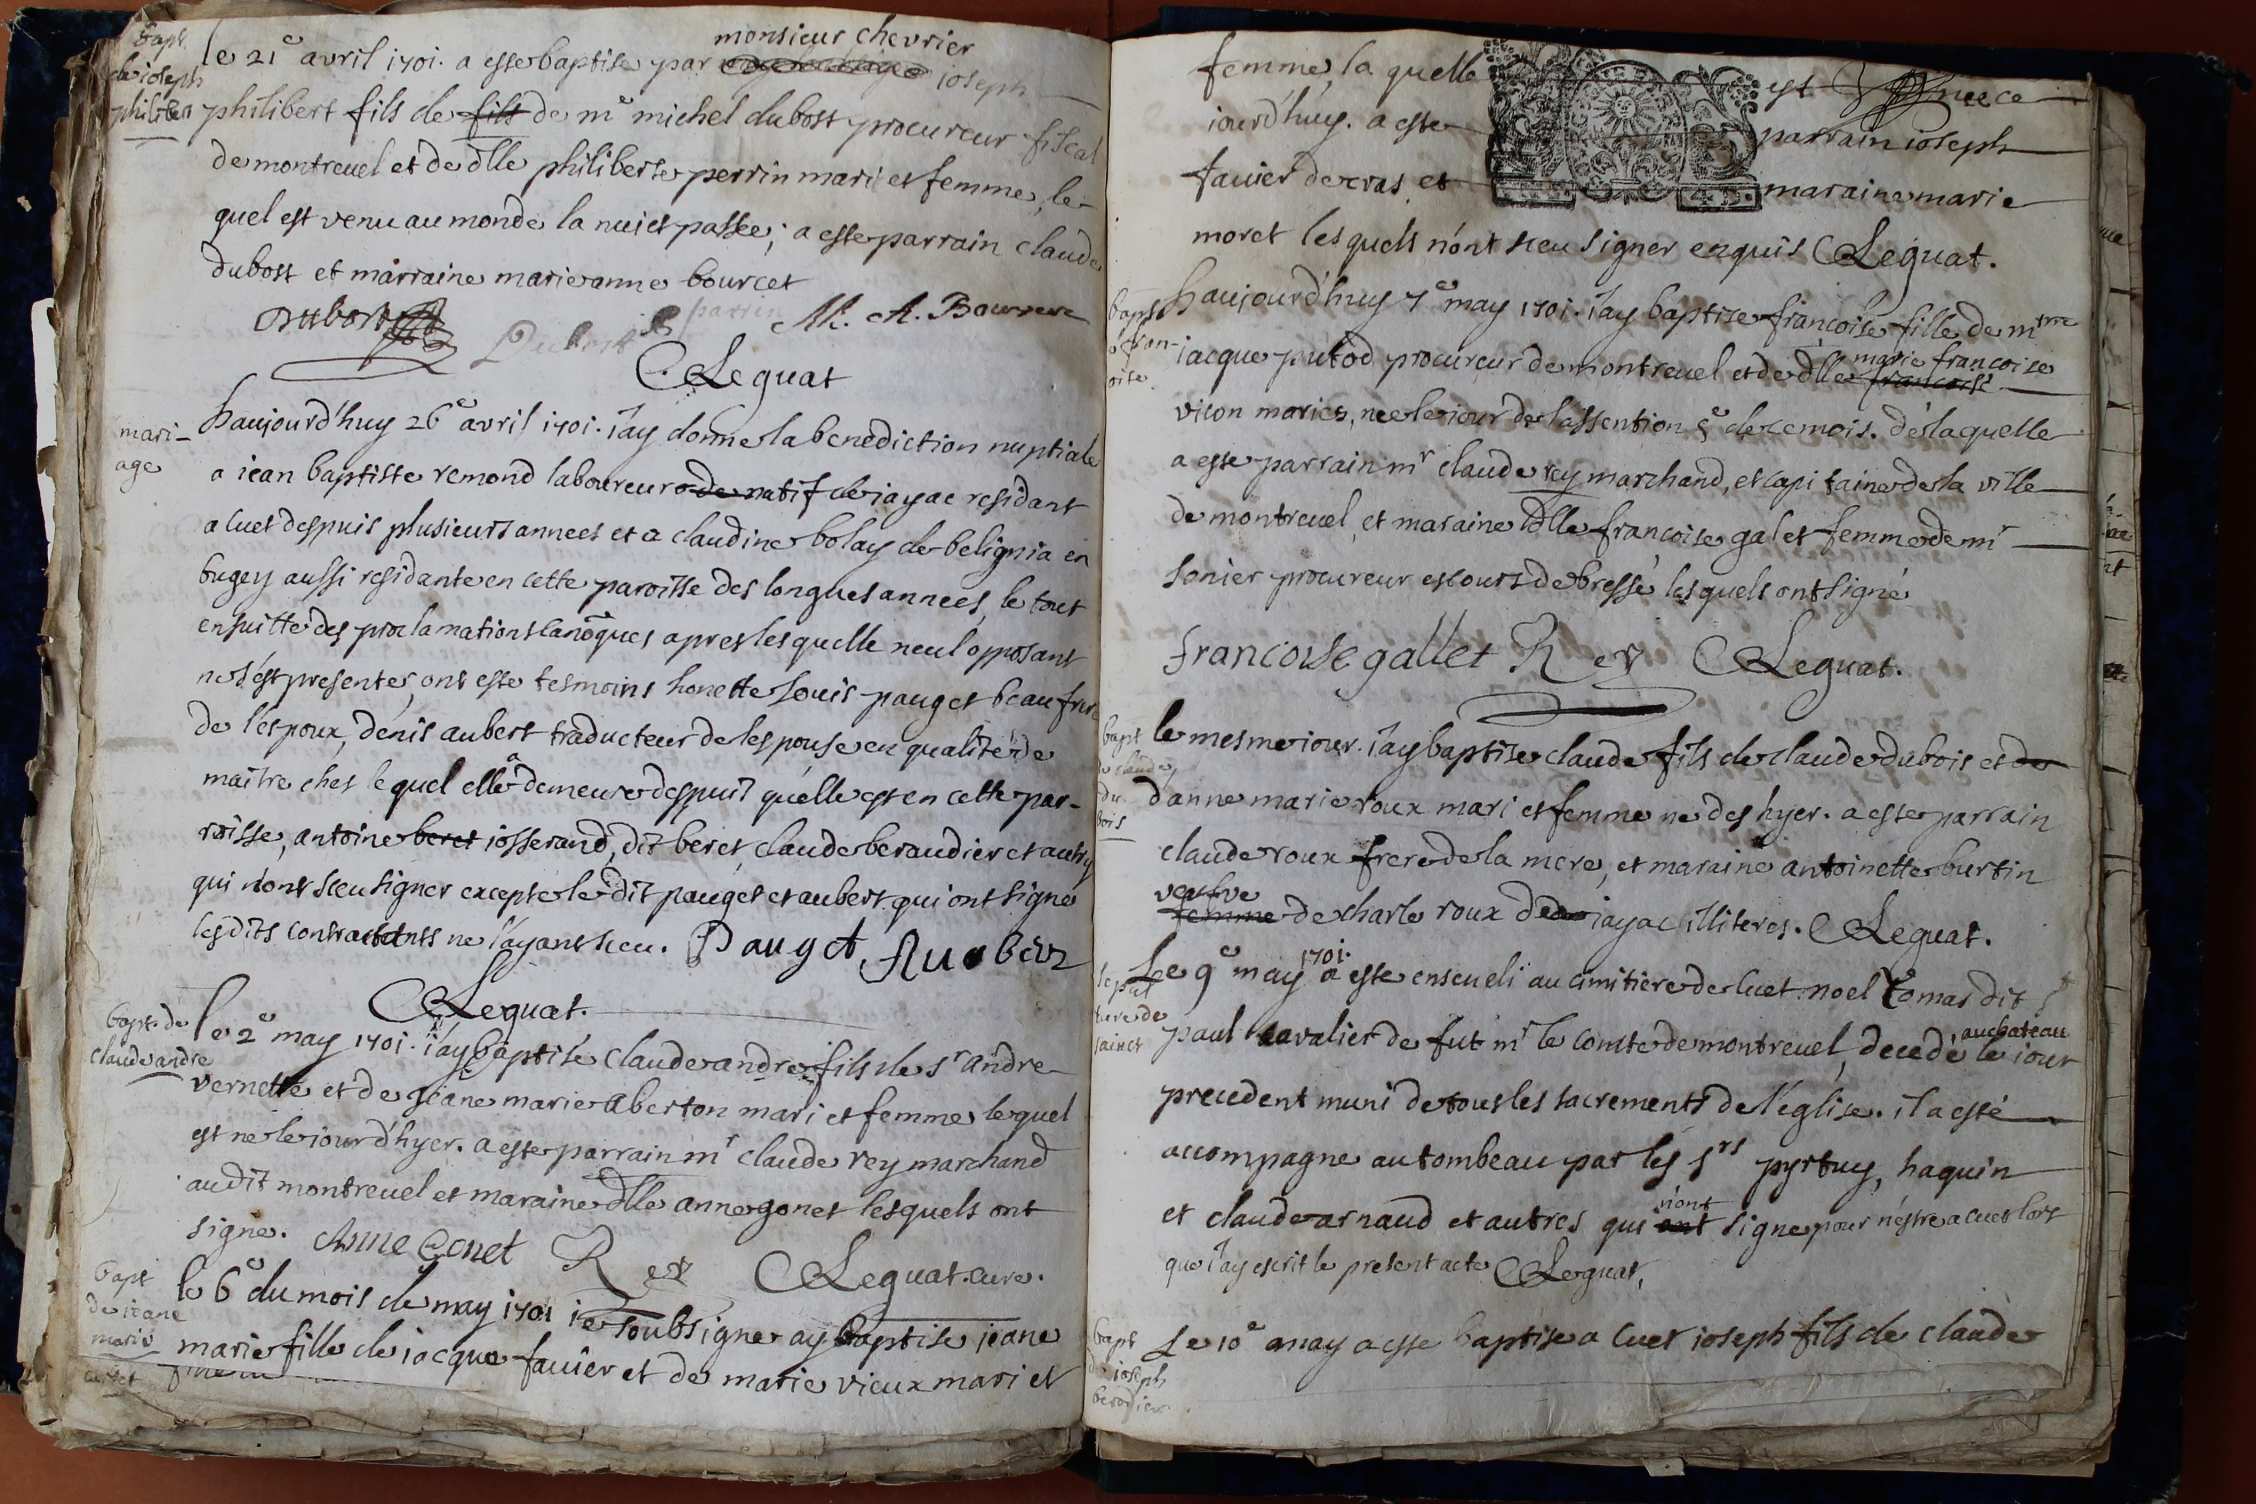 bapt.
de ioseph
philibert
monsieur chevrier
le 21e avril 1701. a esse baptise par ioseph
philibert fils de fils de me michel dubost procureur fiscal
de montrevel et de dlle philiberte perrin mari et femme, le
quel est venu au monde la nuict passee; a esse parrain claude
dubost et marraine marie anne bourcet
Dubost M. A. Bourcet
Leguat
mari-
age
haujourd'huy 26e avril 1701. i'ay donne la benediction nuptiale
a iean baptiste remond laboureur de natif de iayac residant
a cuet despuis plusieurs annees et a claudine bolay de belignia en
bugey aussi residante en cette paroisse des longues annees, le tout
ensuitte des proclamations canoques apres lesquelle neul opposant
ne s'est presente, ont esse tesmoins honette louis pauget beau frere
de l'espoux, denis aubert traducteur de lespouse en qualite de
maitre ches le quel elle a demeure despuis qu'elle est en cette par-
roisse, antoine beret iosserand, dit beret claude beraudier et autres
qui n'ont sceu signer excepte le dit pauget et aubert qui ont signe
lesdits contractants ne l'ayant sceu. Pauget Aubert
Leguat.
bapt. de
claude andre
le 2e may 1701. i'ay baptise claude andre fils de sr andre
vernette et de jeane marie aberton mari et femme lequel
est ne le iour d'hyer. a esse parrain mr claude rey marchand
audit montrevel et maraine dlle anne gonet lesquels ont
signe. Anne Gonet Rey Leguat. cure.
bapt
de ieane
marie
le 6e du mois de may 1701 ie soubsigne ay baptise ieane
marie fille de iacque favier et de marie vieux mari et
femme, la quelle est neece
iourd'huy. a esse parrain ioseph
favier de cras et maraine marie
moret lesquels n'ont sceu signer enquis Leguat.
bapt
fran-
oise
haujourd'huy 7e may 1701. i'ay baptise françoise fille de mtre
iacque putod procureur de montrevel et de dlle françoise
marie françoise
vicon maries, nee le iour de l'assention 5e de ce mois. de laquelle
a esse parrain mr claude rey marchand, et capitaine de la ville
de montrevel, et maraine dlle françoise galet femme de mr
sonier procureur es cours de bresse, lesquels ont signé
francoise gallet Rey Leguat.
bapt
de claude
du
bois
le mesme iour. i'ay baptise claude fils de claude dubois et de
d'anne marie roux mari et femme ne des hyer. a esse parrain
claude roux frere de la mere, et maraine antoinette burtin
veufve
femme de charle roux de iayac illiteres. Leguat.
sepul
ture de
Le 9e may 1701. a este enseveli au cimitiere de cuet noel tomas dit st
paul cavalier de fut mr le comte de montrevel, decede au chateau le iour
precedent muni de tous les sacrements de l'eglise. il a esté
accompagne au tombeau par les srs pyrtuy, haquin
et claude arnaud et autres qui ont n'ont signe pour n'estre a cuet lors
que i'ay escrit le present acte Leguat,
bapt
de ioseph
Le 10e may a esse baptise a cuet ioseph fils de claude